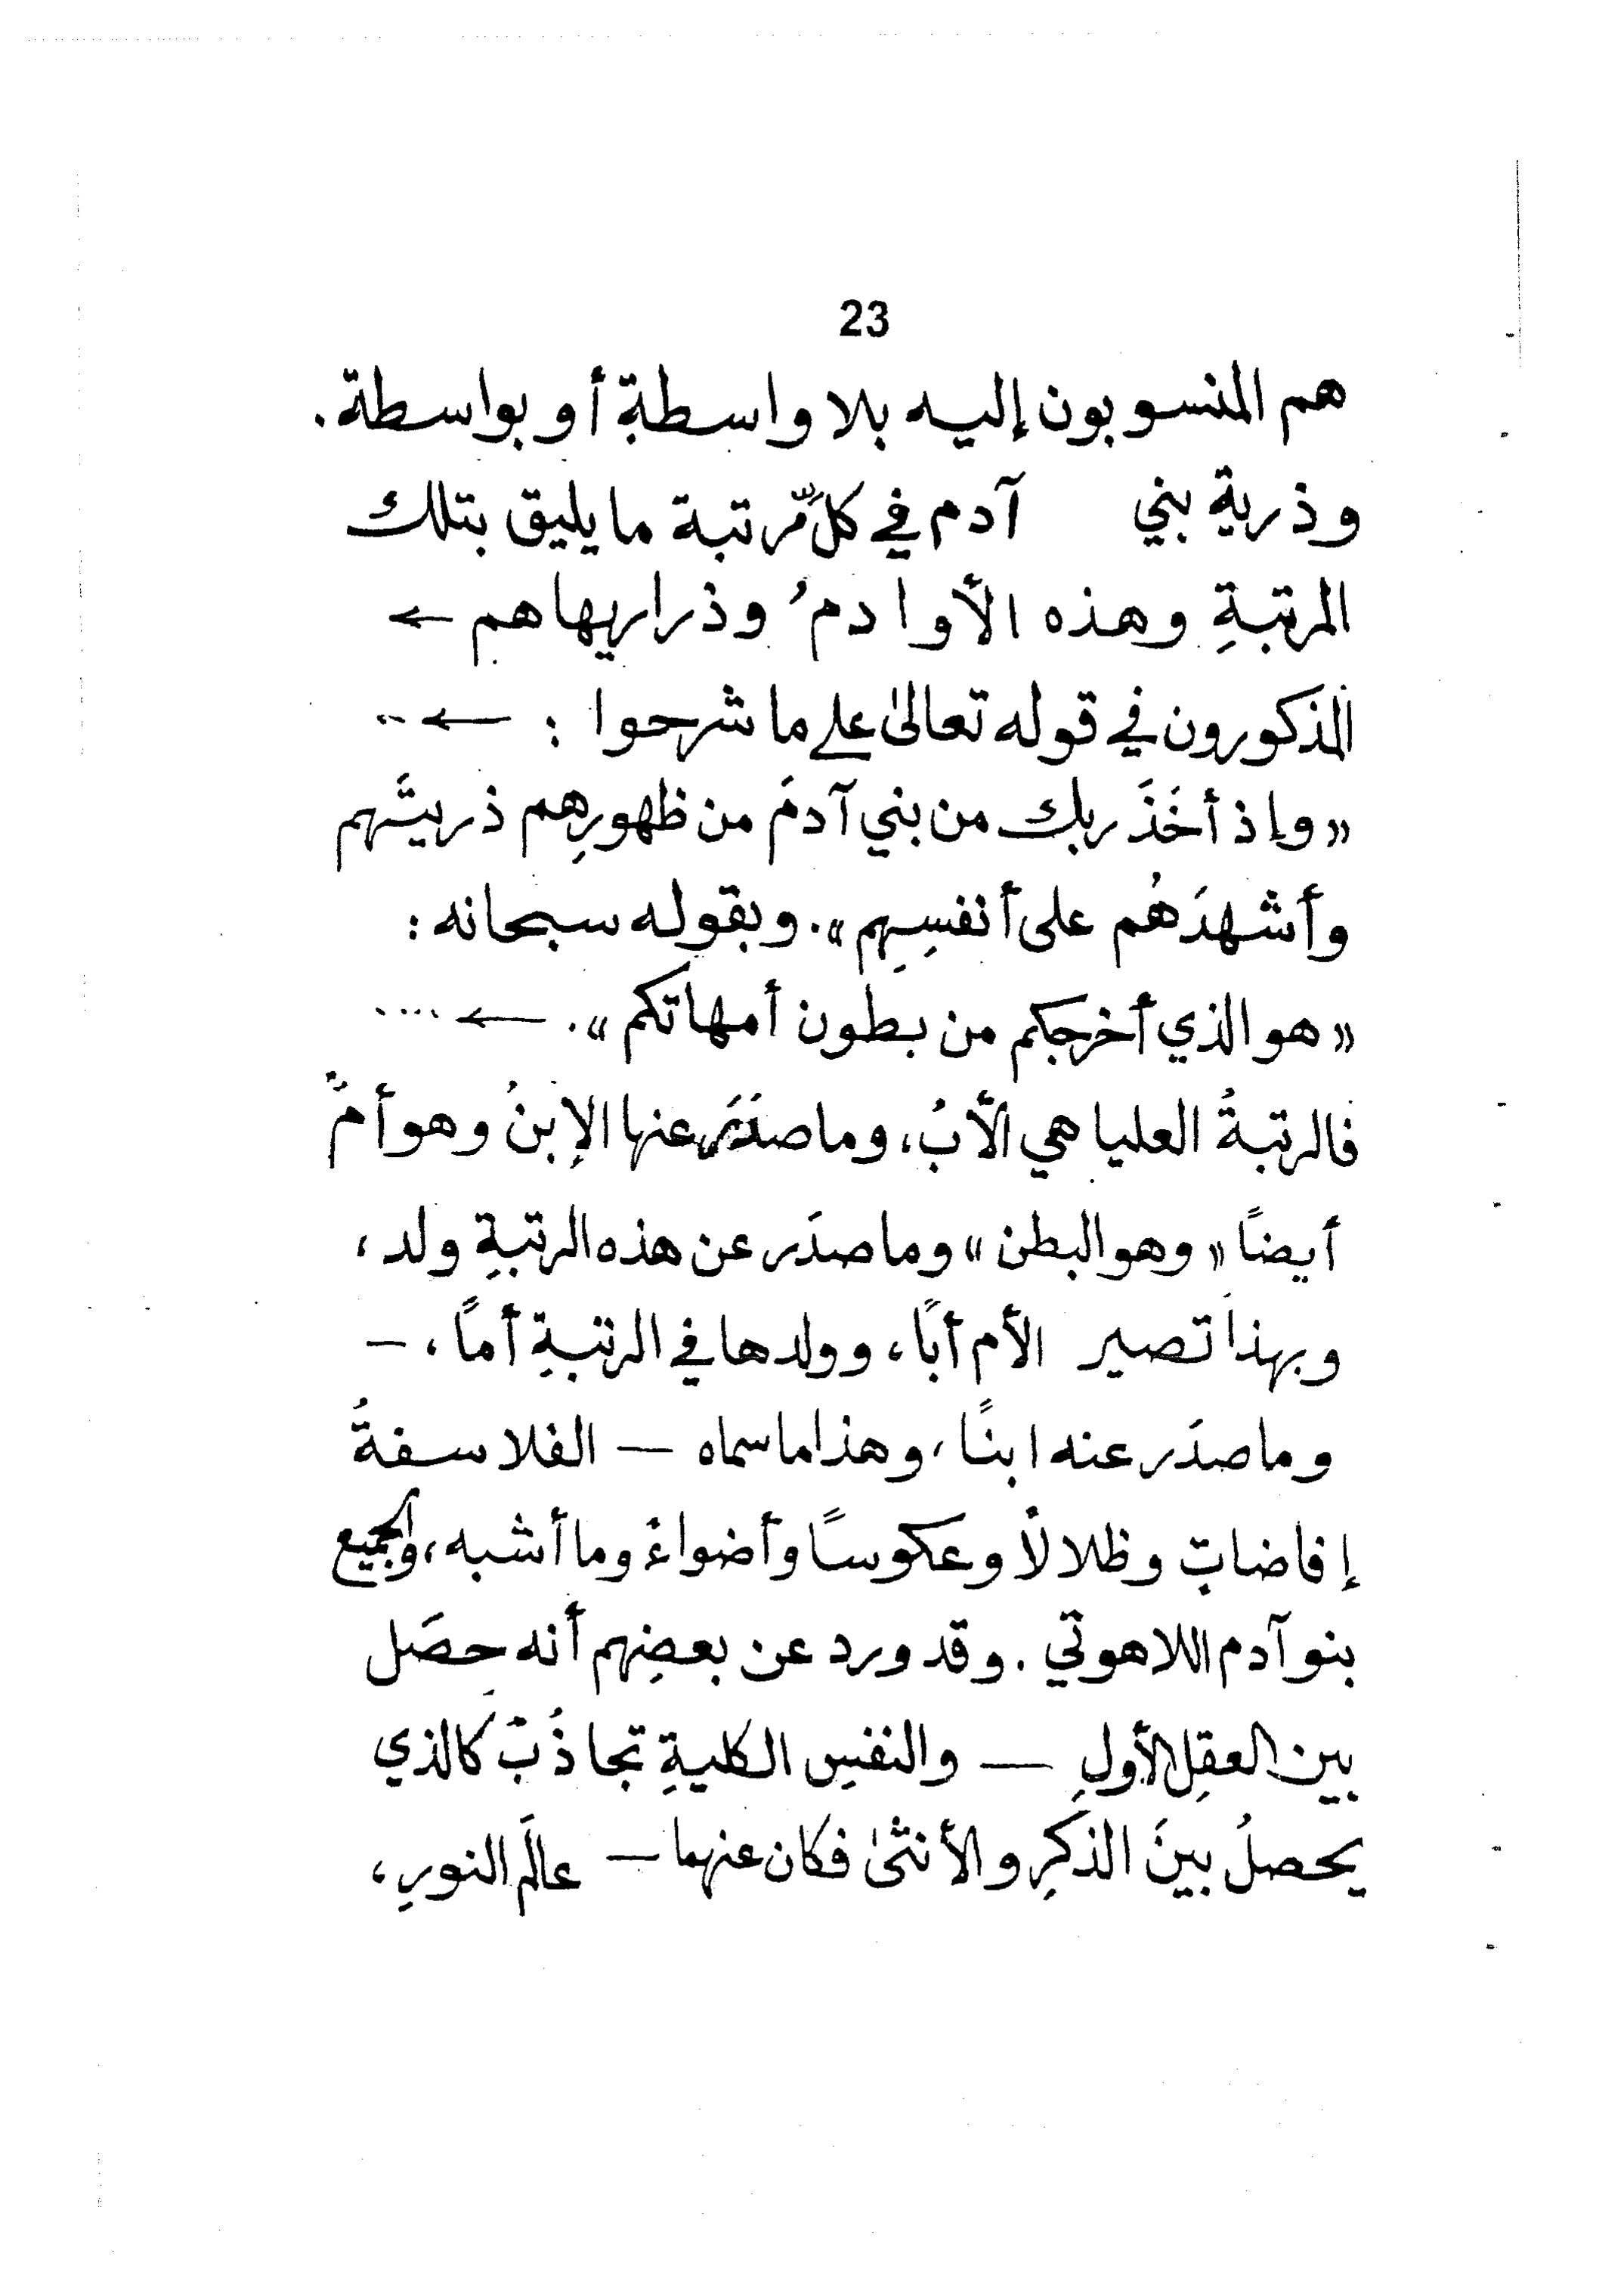 23
هم المنسوبون إليه بلا واسطةٍ أو بواسطة.
وذرية بني آدم في كلِّ مرتبة ما يليق بتلك
المرتبةِ وهذه الأوادمُ وذراريها هم ←
المذكورون في قوله تعالىٰ على ما شرحوا : ←
«وإذ أخَذَ ربك من بني آدمَ من ظهورِهم ذريتَهم
وأشهدَهُم على أنفسِهِم». وبقوله سبحانه :
«هو الذي أخرجكم من بطون أمهاتكم». ← ....
فالرتبةُ العليا هي الأبُ، وما صدَرَ عنها الإبنُ وهو أمٌ
أيضًا «وهو البطن» وما صدَر عن هذه الرتبةِ ولد،
وبهذا تصير الأم أبًا، وولدها في الرتبةِ أمًا، –
وما صدَر عنه ابنًا، وهذا ما سماه — الفلاسفةُ
إفاضاتٍ وظلالًا وعكوسًا وأضواءً وما أشبه، والجميع
بنو آدم اللاهوتي. وقد ورد عن بعضِهم أنه حصَل
بين العقلِ الأولِ — والنفسِ الكليةِ تجاذُبٌ كالذي
يحصلُ بينَ الذكرِ والأنثىٰ فكان عنهما — عالَم النورِ،